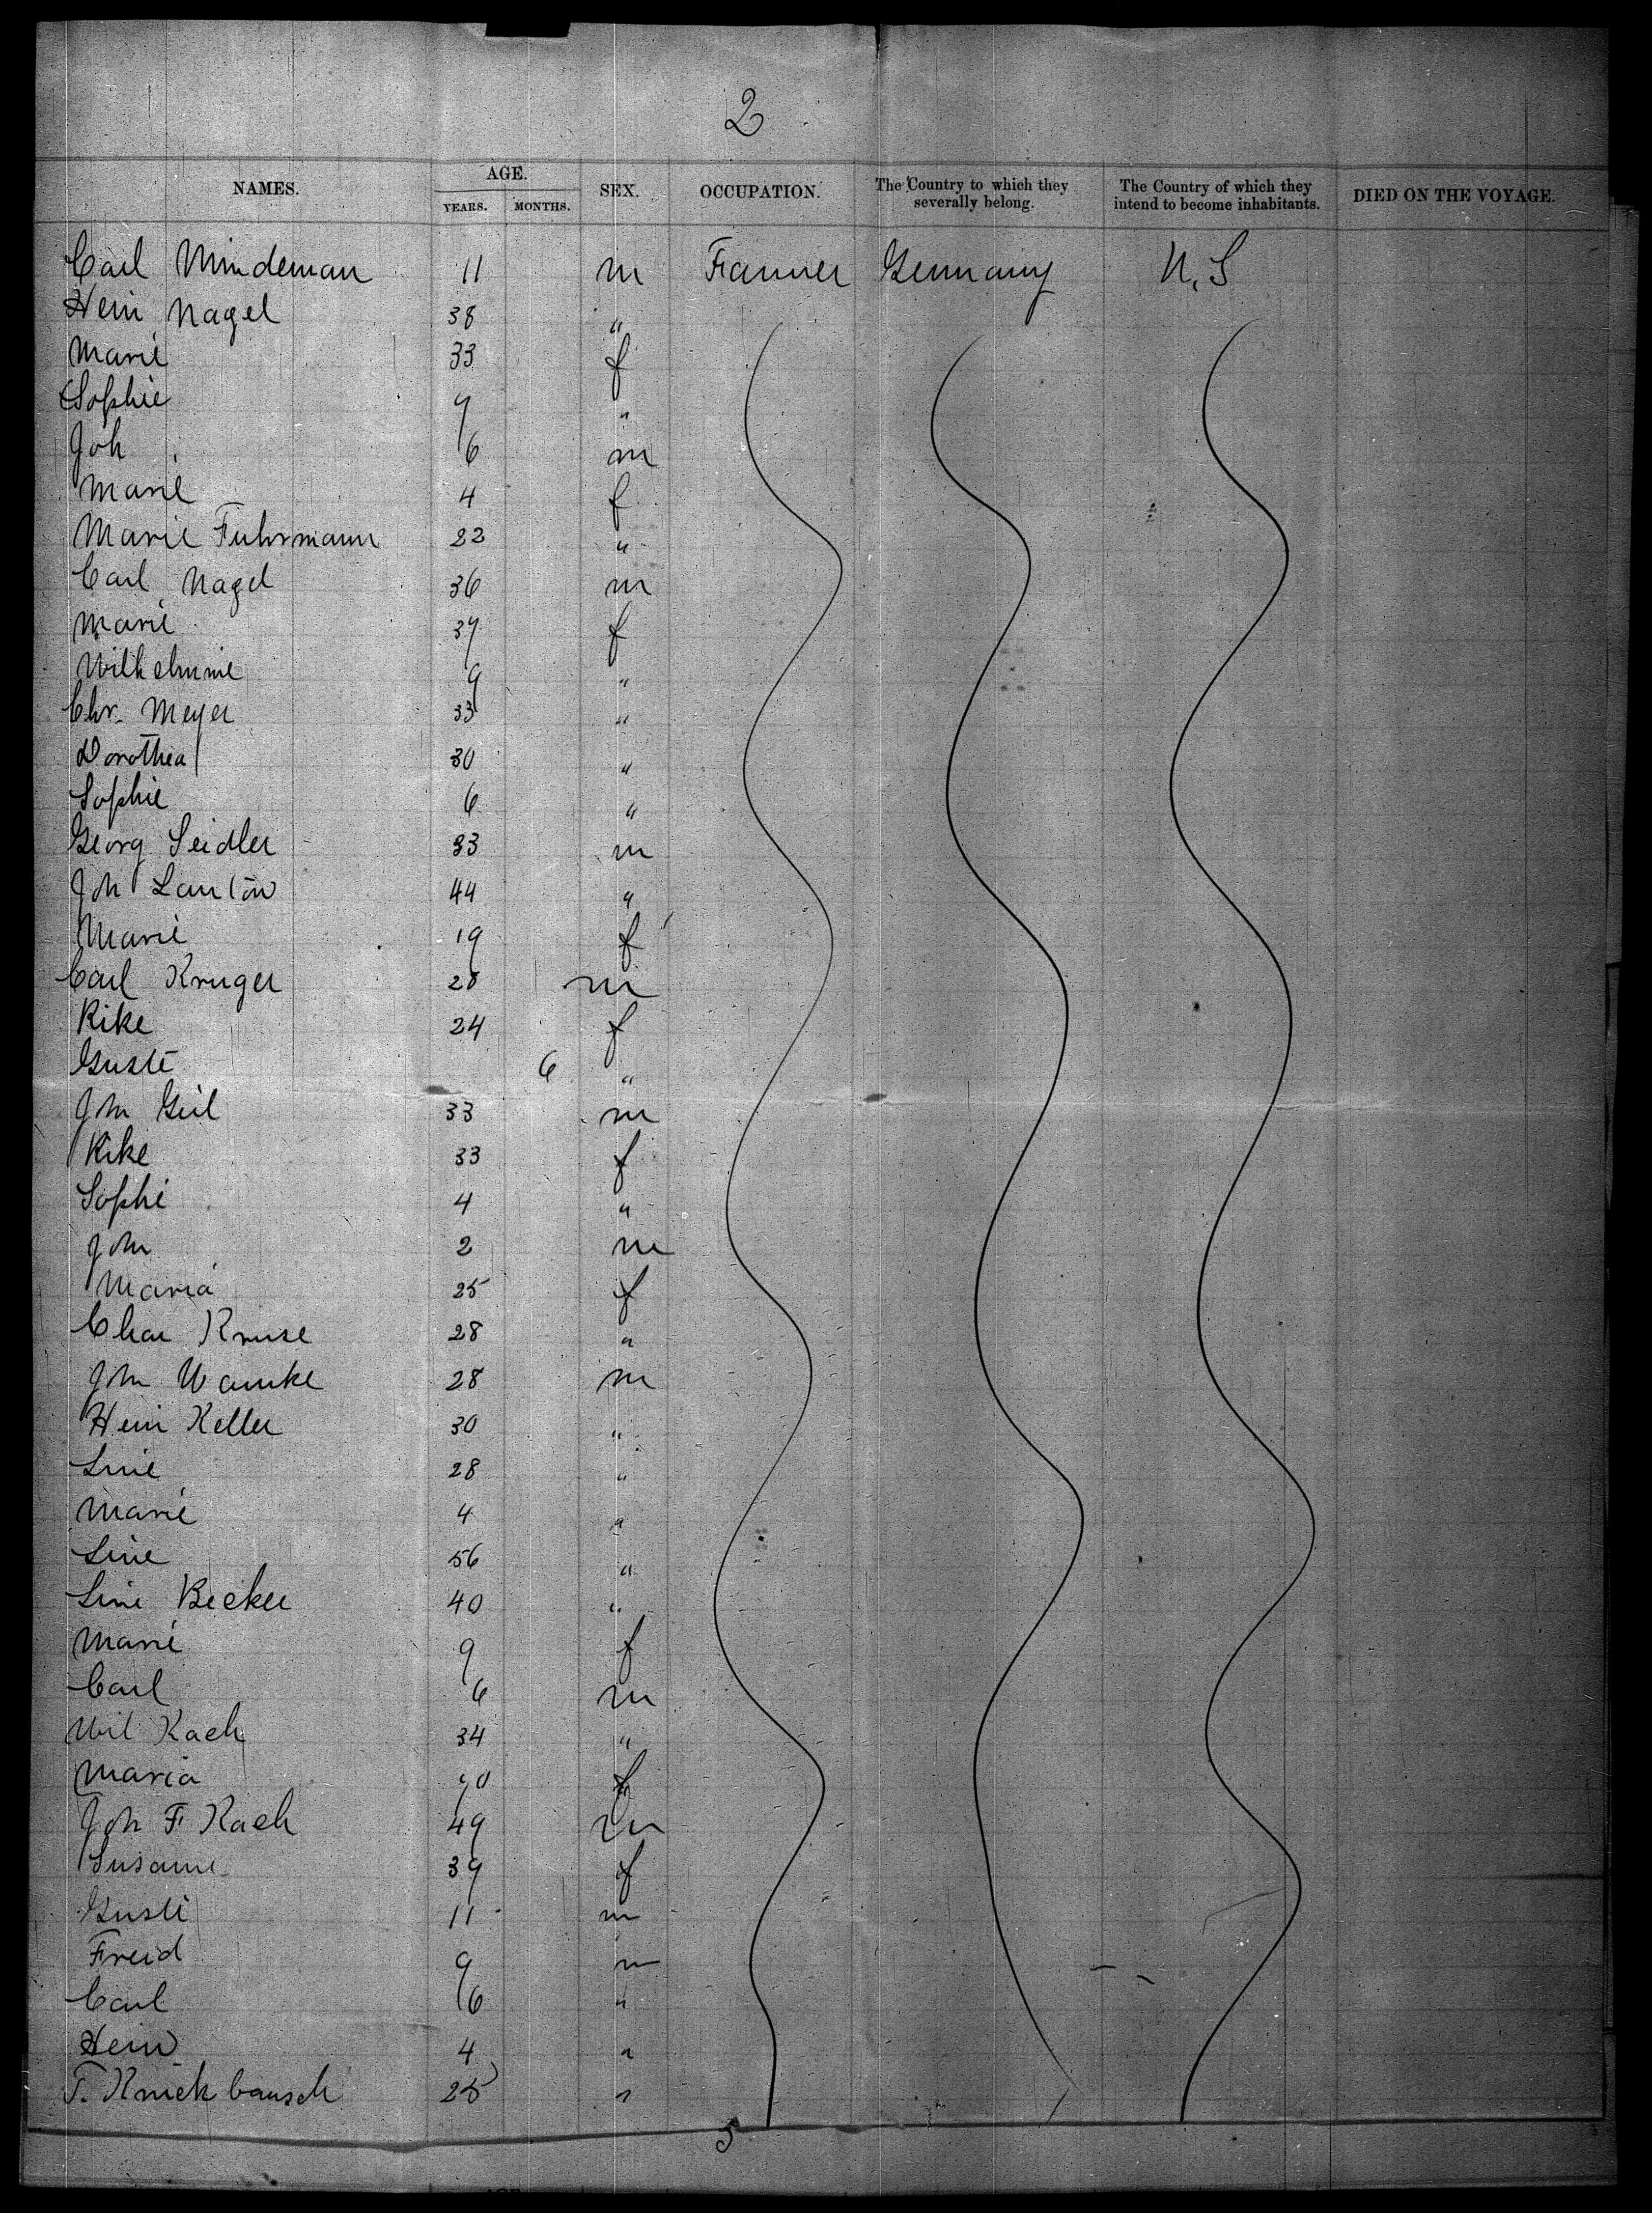 2
NAMES. AGE. YEARS. MONTHS. SEX. OCCUPATION. The Country to which they severally belong. The Country of which they intend to become inhabitants. DIED ON THE VOYAGE.
Carl Mindeman 11 m Farmer Germany U.S
Hein Nagel 38 "
Marie 33 f
Sophie 9 "
Joh 6 m
Marie 4 f
Marie Fuhrmann 22 "
Carl Nagel 36 m
Marie 37 f
Wilhelmine 9 "
Chr. Meyer 33 "
Dorothea 30 "
Sophie 6 "
Georg Seidler 33 m
Joh 44 "
Marie 19 f
Carl Kruger 28 m
Rike 24 f
Guste 6 "
Joh Geil 33 m
Rike 33 f
Sophi 4 "
Joh 2 m
Maria 25 f
Kruse 28 "
Joh Warnke 28 m
Hein Keller 30 "
Line 28 "
Marie 4 "
Line 56 "
Line Becker 40 "
Marie 9 f
Carl 6 m
Wil Kach 34 "
Maria f
Joh F Kach 49 m
Susanne 39 f
Guste 11 m
Freid 9 m
Carl 6 "
Hein 4 "
F. 25 "